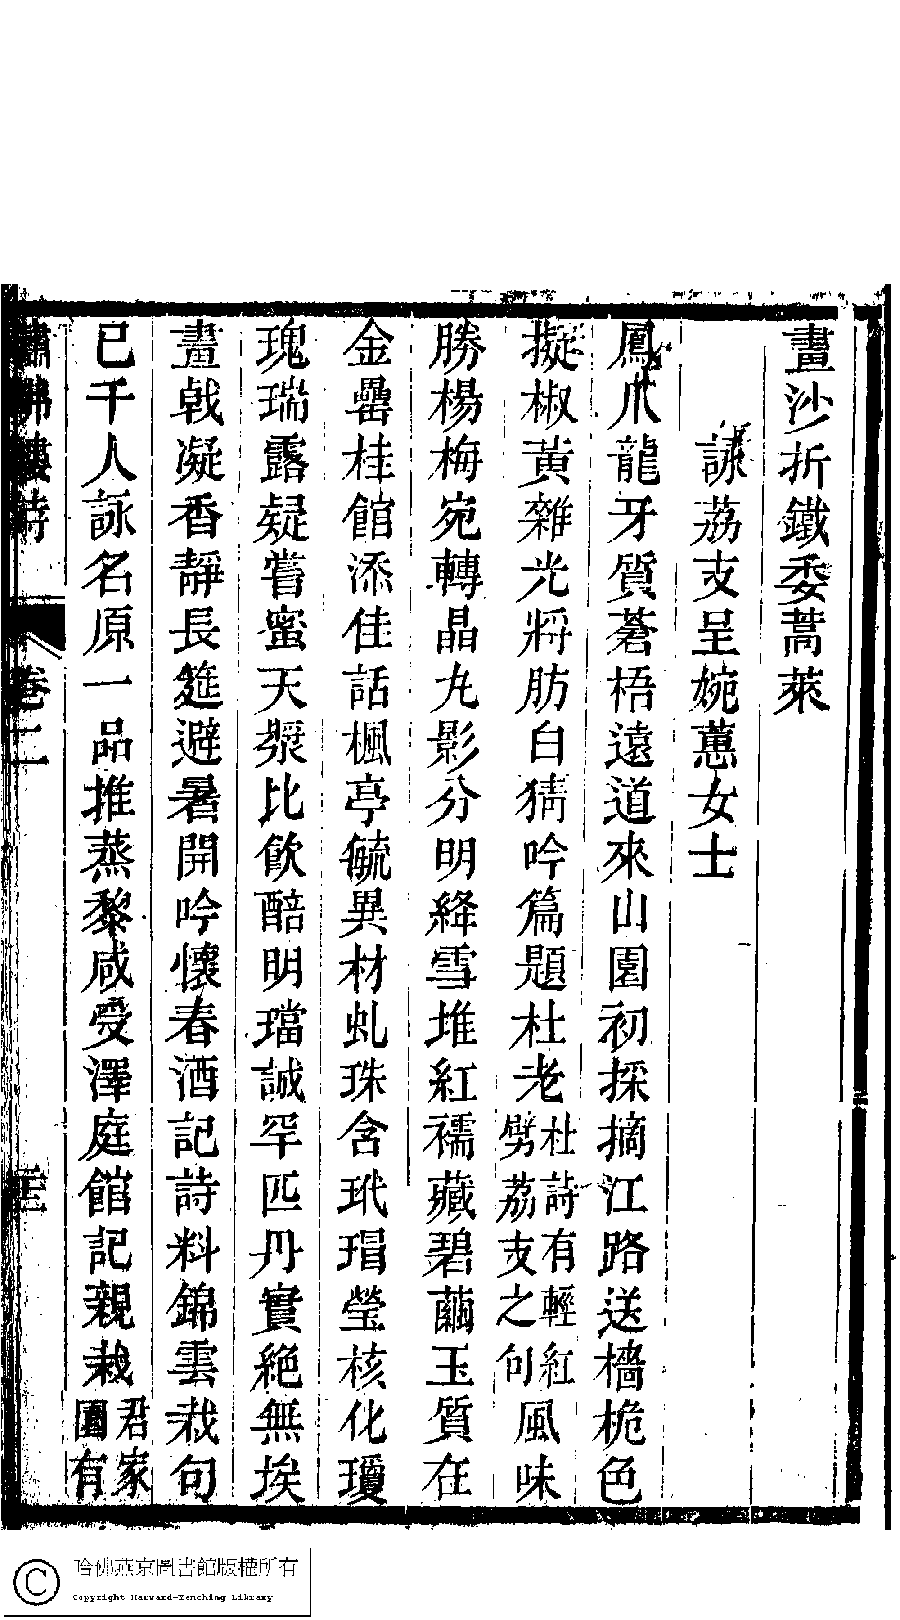 畫沙折鐵委蒿萊
詠荔支呈婉蕙女士
鳳爪龍牙質蒼梧遠道來山園初採摘江路送檣桅色
擬椒黃雜光將肪白猜吟篇題杜老杜詩有輕紅劈荔支之句風味
勝楊梅宛轉晶丸影分明絳雪堆紅襦藏碧繭玉質在
金罍桂館添佳話楓亭毓異材虬珠含玳瑁瑩核化瓊
瑰瑞露疑嘗蜜天漿比飲醅明璫誠罕匹丹實絶無埃
畫戟凝香靜長筵避暑開吟懷春酒記詩料錦雲裁句
已千人詠名原一品推蒸黎咸受澤庭館記親栽君家園有
卷二
哈佛燕京圖書館版權所有
Copyright Harvard-Yenching Library